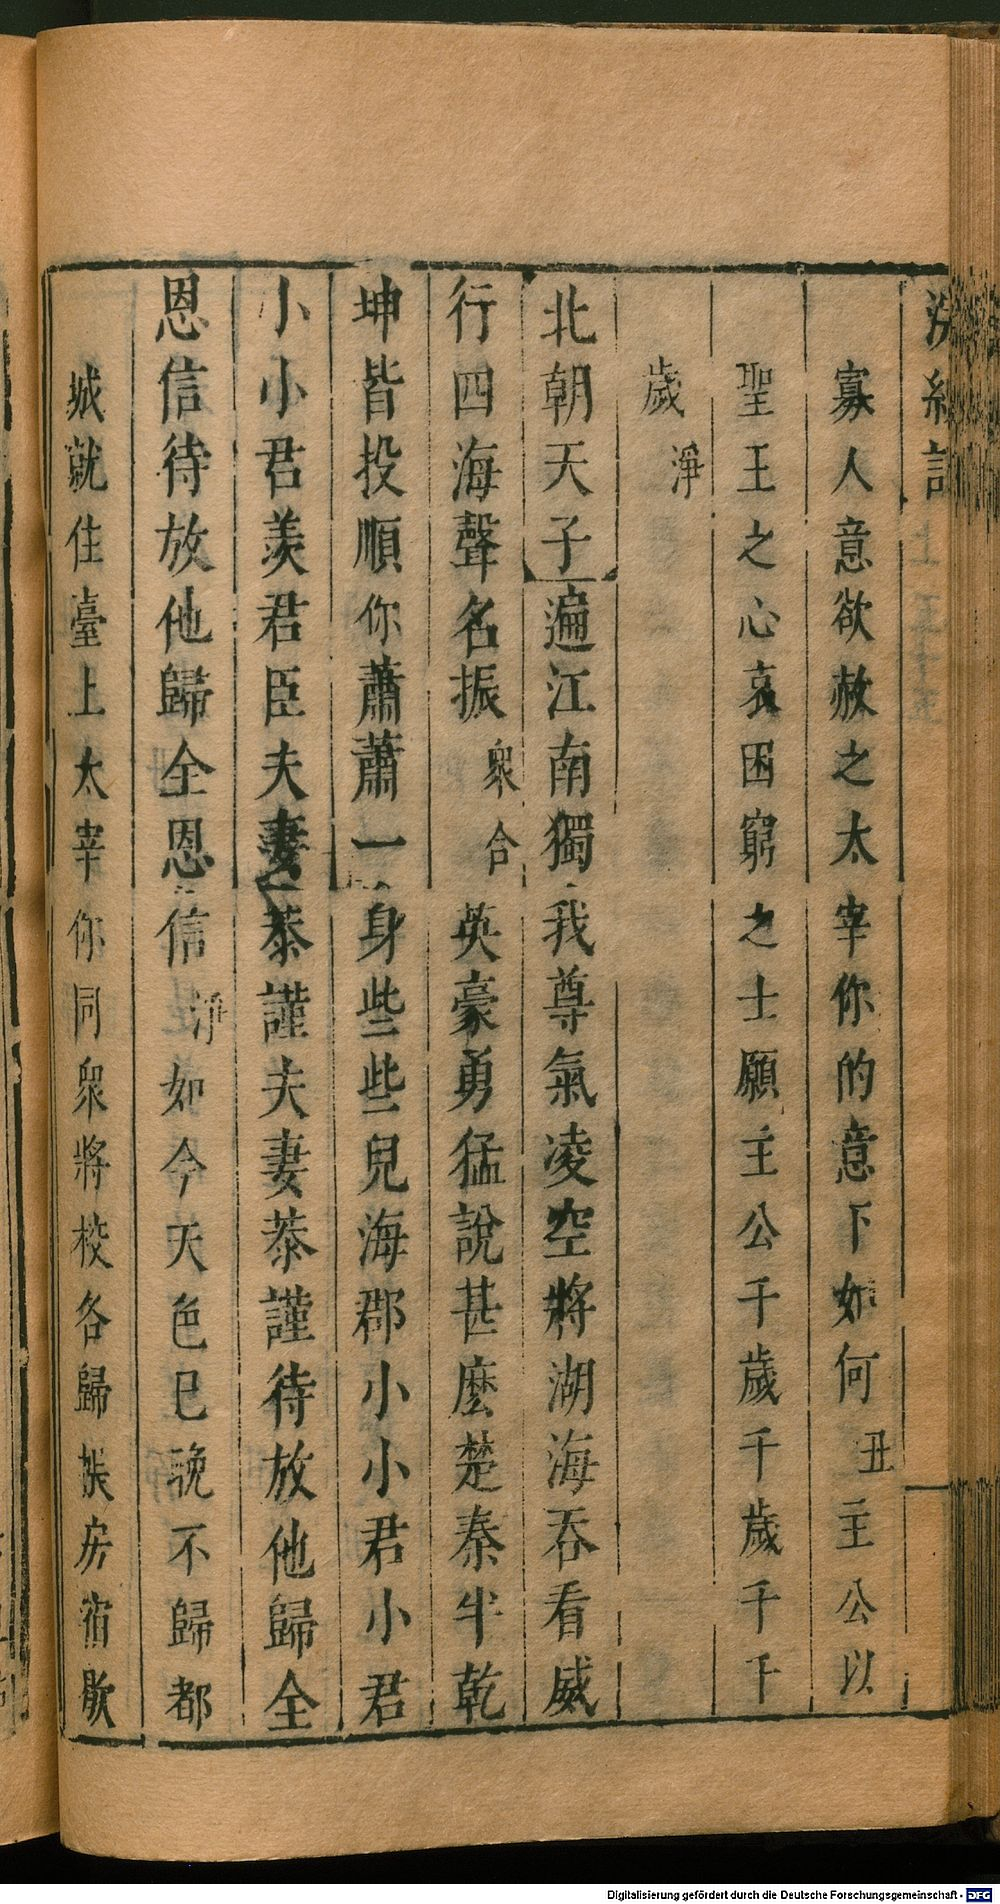 浣紗記
寡人意欲赦之太宰你的意下如何丑主公以
聖王之心哀困窮之士願主公千歲千歲千千
歲淨
北朝天子遍江南獨我尊氣凌空將湖海吞看威
行四海聲名振衆合英豪勇猛說甚麽楚秦半乾
坤皆投順你蕭蕭一身些些兒海郡小小君小君
小小君羡君臣夫妻恭謹夫妻恭謹待放他歸全
恩信待放他歸全恩信淨如今天色已晚不歸都
城就住臺上太宰你同衆將校各歸帳房宿歇
Digitalisierung gefördert durch die Deutsche Forschungsgemeinschaft - DFG